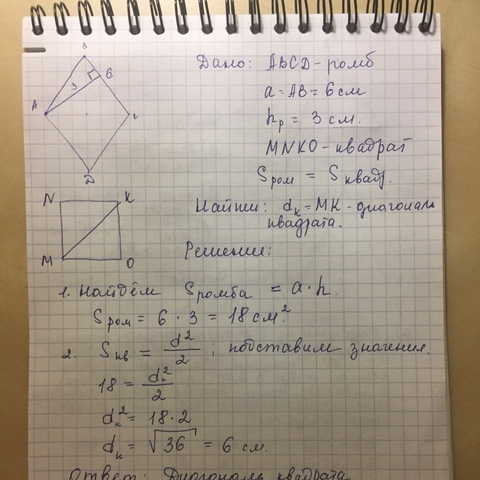 Дано: ABCD - ромб
a = AB = 6 см
hр = 3 см.
MNKO - квадрат
Sром = Sквадр.
Найти: dк = MK - диагональ
квадрата.
Решение:
B
6
3
A
D
N
K
M
O
1. Найдём Sромба = a · h
Sром = 6 · 3 = 18 см².
2. Sкв = d²/2 ; подставим значения.
18 = dк²/2
dк² = 18 · 2
dк = √36 = 6 см.
Ответ: Диагональ квадрата